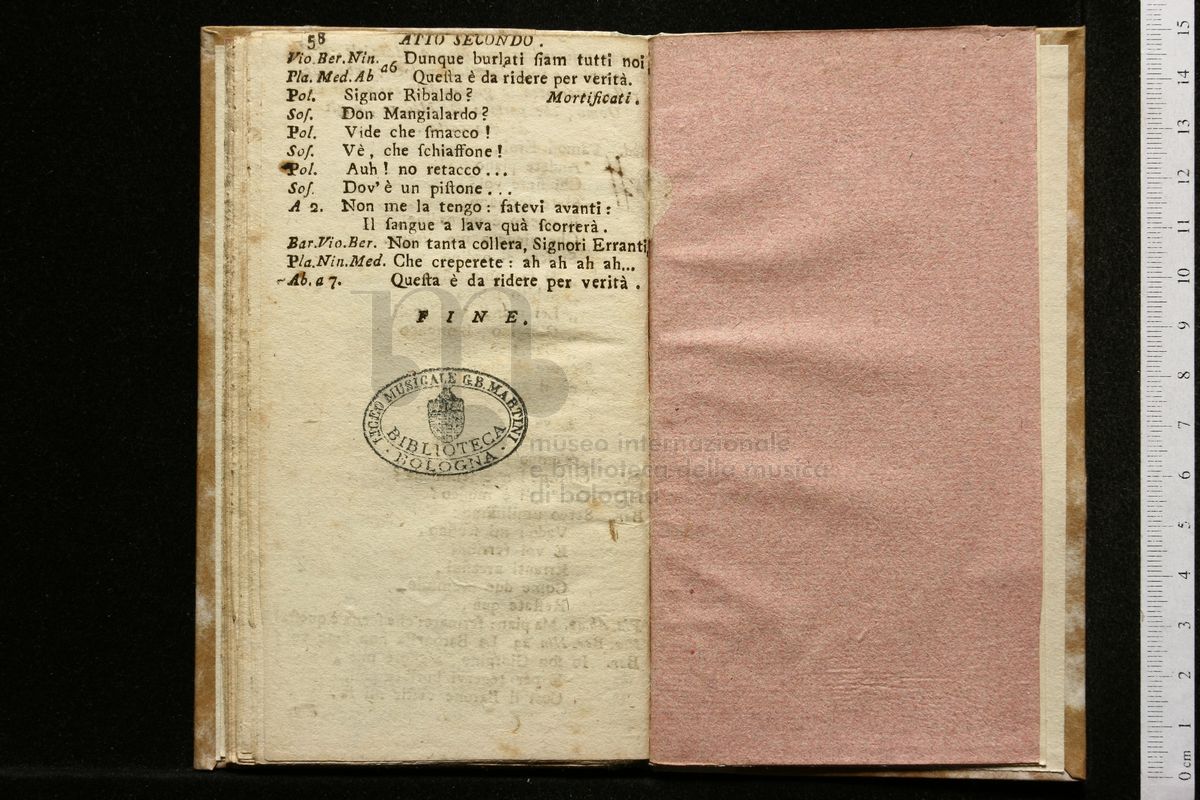 58 ATTO SECONDO.
Vio. Ber. Nin. a6 Dunque burlati ſiam tutti noi
Pla. Med. Ab Queſta è da ridere per verità.
Pol. Signor Ribaldo? Mortificati.
Soſ. Don Mangialardo?
Pol. Vide che ſmacco!
Soſ. Vè, che ſchiaffone!
Pol. Auh! no retacco...
Soſ. Dov'è un piſtone...
A 2. Non me la tengo: fatevi avanti:
Il ſangue a lava quà ſcorrerà.
Bar. Vio. Ber. Non tanta collera, Signori Erranti,
Pla. Nin. Med. Che creperete: ah ah ah ah...
Ab. a 7. Queſta è da ridere per verità.
FINE.
LICEO MUSICALE G.B. MARTINI
BIBLIOTECA
BOLOGNA
museo internazionale
e biblioteca della musica
di bologna
15
14
13
12
11
10
9
8
7
6
5
4
3
2
1
0 cm